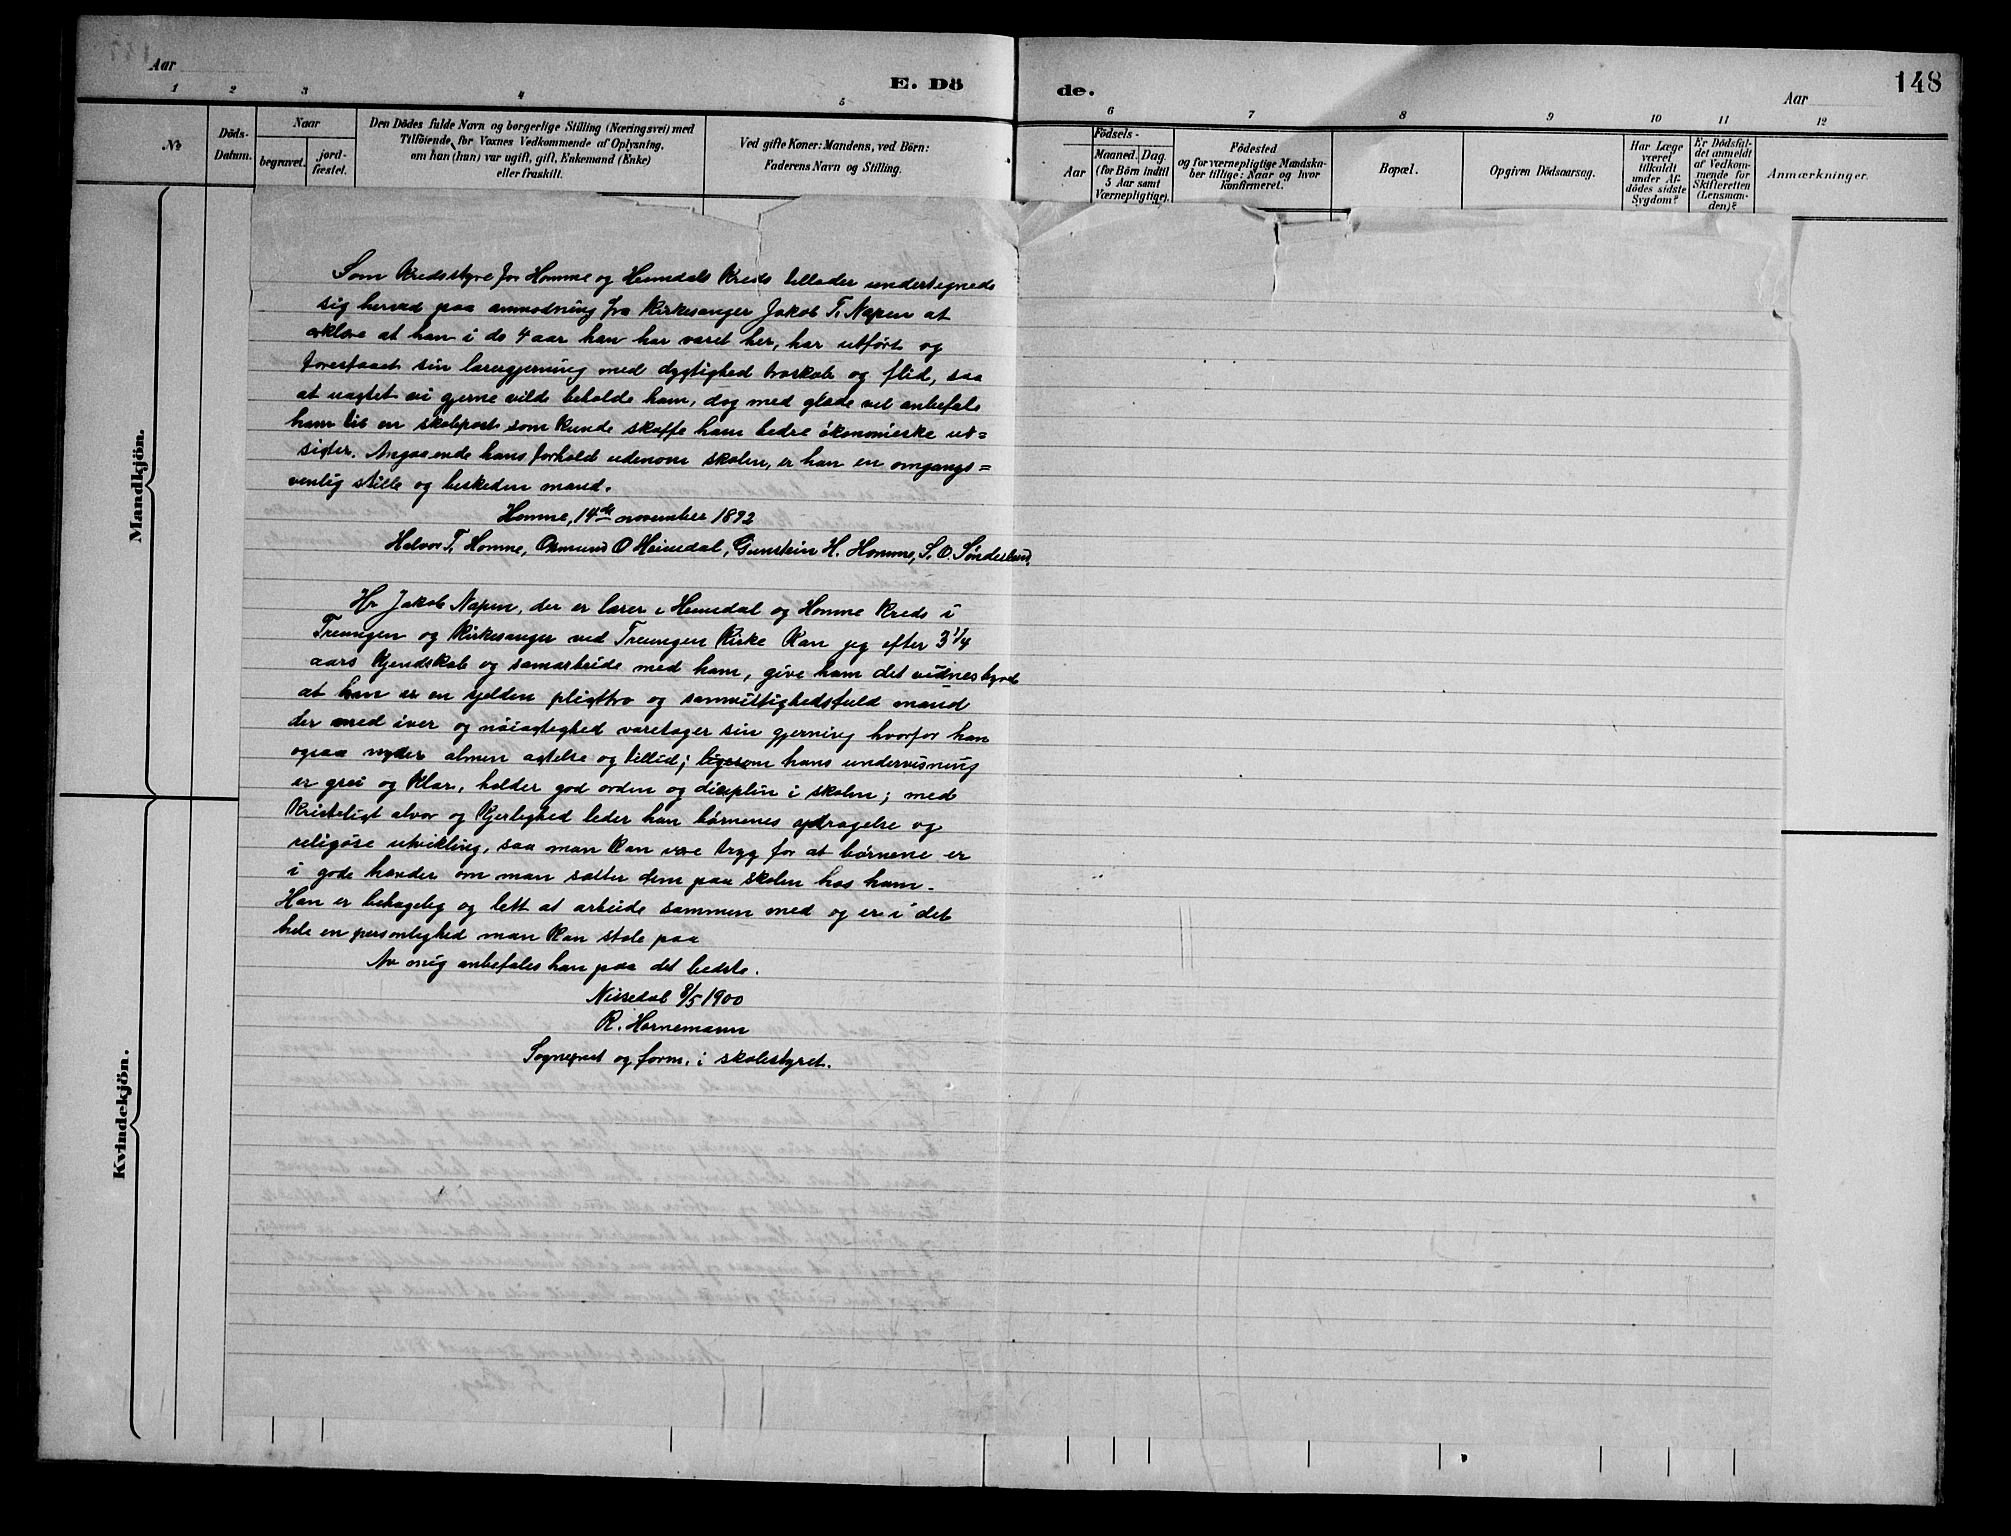 148
Aar
E. Dö
de.
Aar
1 2 3 4 5
6 7 8 9 10 11 12
No
Döds-
Datum.
Naar
begravet.
jord-
fæstet.
Den Dödes fulde Navn og borgerlige Stilling (Næringsvei) med
Tilföiende, for Voxnes Vedkommende af Oplysning,
om han (hun) var ugift, gift, Enkemand (Enke)
eller fraskilt.
Ved gifte Koner: Mandens, ved Börn:
Faderens Navn og Stilling.
Födsels-
Aar
Maaned. Dag.
(for Börn indtil
5 Aar samt
Værnepligtige).
Födested
og for værnepligtige Mandska-
ber tillige: Naar og hvor
konfirmeret.
Bopæl.
Opgiven Dödsaarsag.
Har Læge
været
tilkaldt
under Af-
dödes sidste
Sygdom?
Er Dödsfal-
det anmeldt
af Vedkom-
mende for
Skifteretten
(Lensman-
den)?
Anmærkninger.
Mandkjön.
Kvindekjön.
Som Kredsstyre for Homme og Heimdals Kreds tillader undertegnede
sig herved paa anmodning fra Kirkesanger Jakob T. Napen at
erklære at han i de 4 aar han har været her, har utført og
forestaaet sin lærergjerning med dygtighed troskab og flid, saa
at uagtet vi gjerne vilde beholde ham, dog med glæde vil anbefale
ham til en skolepost som kunde skaffe ham bedre økonomiske ut=
sigter. Angaaende hans forhold udenom skolen, er han en omgangs=
venlig stille og beskeden mand.
Homme, 14de november 1892
Halvor T. Homme, Osmund O Heimdal, Gunstein H. Homme, S. O. Sønderland.
Hr Jakob Napen, der er lærer i Heimdal og Homme Kreds i
Treungen og Kirkesanger ved Treungen Kirke kan jeg efter 3 1/4
aars Kjendskab og samarbeide med ham, give ham det vidnesbyrd
at han er en sjelden pligttro og samvittighedsfuld mand
der med iver og nøiagtighed varetager sin gjerning hvorfor han
ogsaa nyder almen agtelse og tillid; ligesom hans undervisning
er grei og klar, holder god orden og disciplin i skolen; med
Kristeligt alvor og Kjerlighed leder han børnenes opdragelse og
religøse utvikling, saa man kan være tryg for at børnene er
i gode hænder om man sætter dem paa skolen hos ham.
Han er behagelig og lett at arbeide sammen med og er i det
hele en personlighed man kan stole paa
Av mig anbefales han paa det bedste.
Nissedal 8/5 1900
R. Hornemann
Sogneprest og form. i skolestyret.